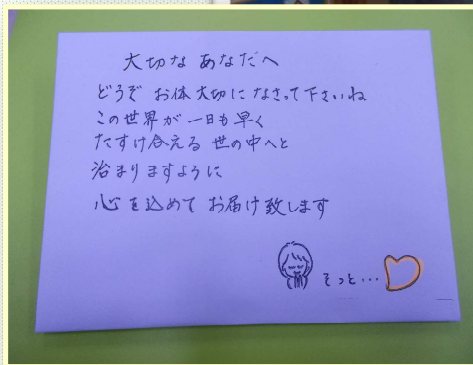 大切な あなたへ
どうぞ お体大切に なさって下さいね
この世界が 一日も早く
たすけ合える 世の中へと
治まりますように
心を込めて お届け致します
そっと…